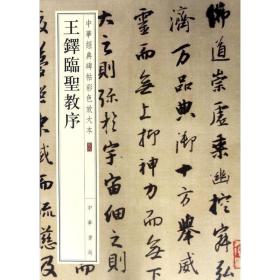 佛道崇虛乘幽控寂弘
濟萬品典御十方舉威
靈而無上抑神力而無下
大之則弥於宇宙細之則
中華經典碑帖彩色放大本
中華書局
王鐸臨聖教序